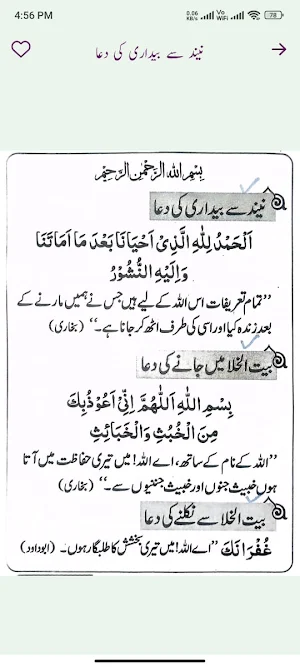 4:56 PM
0.06 KB/s Vo WiFi 78
نیند سے بیداری کی دعا
بِسْمِ اللهِ الرَّحْمٰنِ الرَّحِيْمِ
نیند سے بیداری کی دعا
اَلْحَمْدُ لِلّٰهِ الَّذِىْ اَحْيَانَا بَعْدَ مَا اَمَاتَنَا
وَاِلَيْهِ النُّشُوْرُ
”تمام تعریفات اس اللہ کے لیے ہیں جس نے ہمیں مارنے کے
بعد زندہ کیا اور اسی کی طرف اٹھ کر جانا ہے۔“ (بخاری)
بیت الخلا میں جانے کی دعا
بِسْمِ اللهِ اَللّٰهُمَّ اِنِّىْ اَعُوْذُ بِكَ
مِنَ الْخُبُثِ وَالْخَبَائِثِ
”اللہ کے نام کے ساتھ، اے اللہ! میں تیری حفاظت میں آتا
ہوں خبیث جنوں اور خبیث جنیوں سے۔“ (بخاری)
بیت الخلا سے نکلنے کی دعا
غُفْرَانَكَ ”اے اللہ! میں تیری بخشش کا طلبگار ہوں۔ (ابوداود)